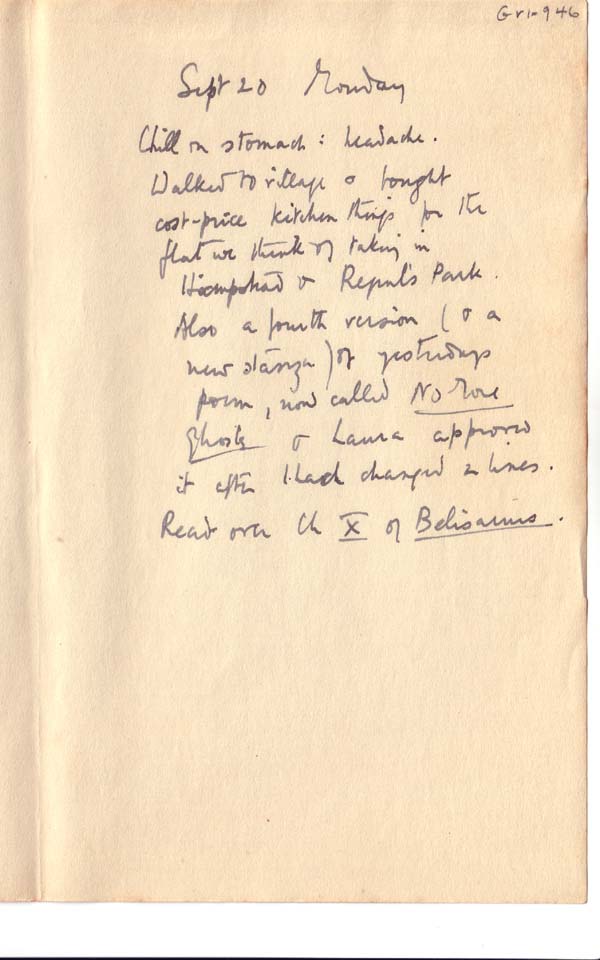 Gr1-946
Sept 20 Monday
Chill on stomach : headache.
Walked to village & bought
cost-price kitchen things for the
flat we think of taking in
Hampstead or Regent's Park.
Also a fourth version (& a
new stanza) of yesterdays
poem, now called No More
Ghosts & Laura approved
it after I had changed 2 lines.
Read over Ch X of Belisarius.